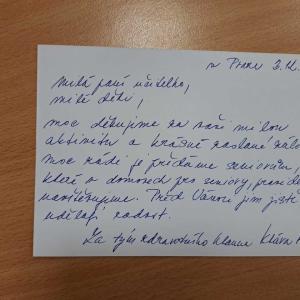 v Praze 3.12.
milá paní učitelko,
milé děti,
moc děkujeme za vaši milou
aktivitu a krásně zaslané
moc rádi je předáme seniorům,
které v domovech pro seniory,
navštěvujeme. Před Vánoci jim jistě
udělají radost.
Za tým zdravotního klauna Klára